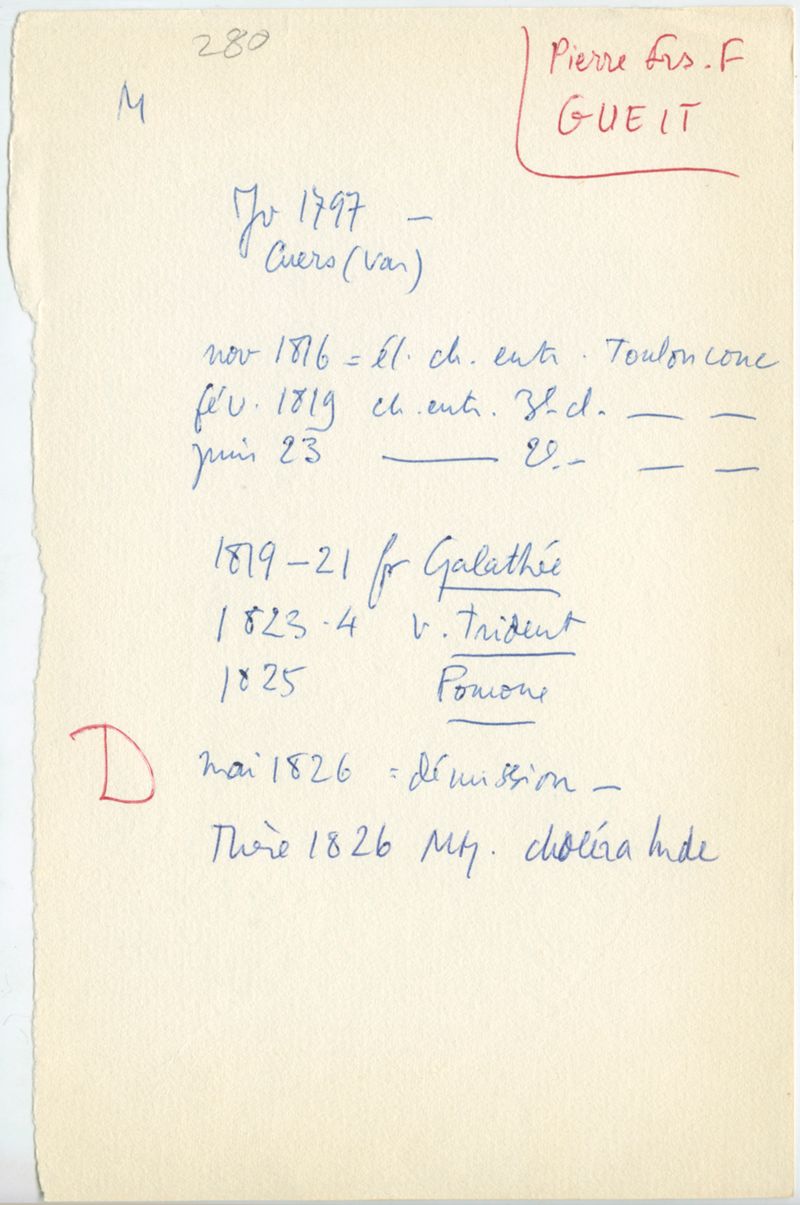 280
Pierre Frs. F
GUEIT
M
Jv 1797 –
Cuers (Var)
nov 1816 = él. ch. entr. Toulon conc
fév. 1819 ch. entr. 3e cl. — —
juin 23 — 2e. - — —
1819 – 21 fr Galathée
1823 - 4 v. Trident
1825 Pomone
D
mai 1826 = démission –
Thèse 1826 MM. choléra Inde